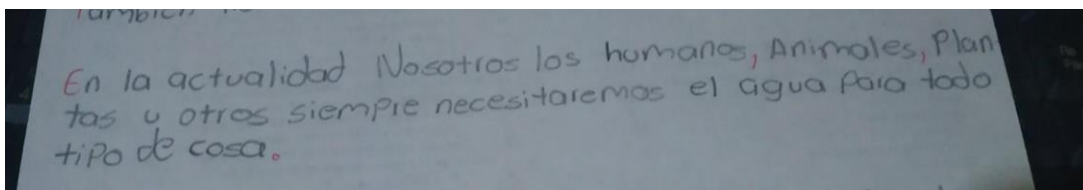 También
En la actualidad Nosotros los humanos, Animales, Plan
tas u otros siempre necesitaremos el agua para todo
tipo de cosa.